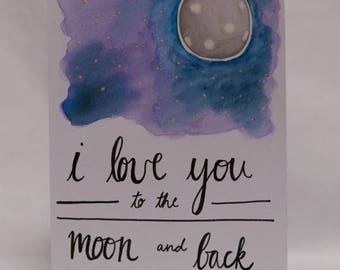 i love you
to the
moon and back